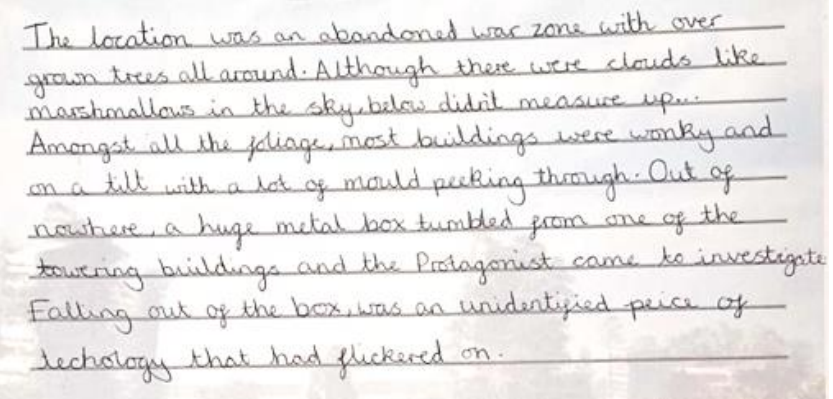 The location was an abandoned war zone with over
grown trees all around. Although there were clouds like
marshmallows in the sky, below didn't measure up...
Amongst all the foliage, most buildings were wonky and
on a tilt with a lot of mould peeking through. Out of
nowhere, a huge metal box tumbled from one of the
towering buildings and the Protagonist came to investigate
Falling out of the box, was an unidentified peice of
techology that had flickered on.